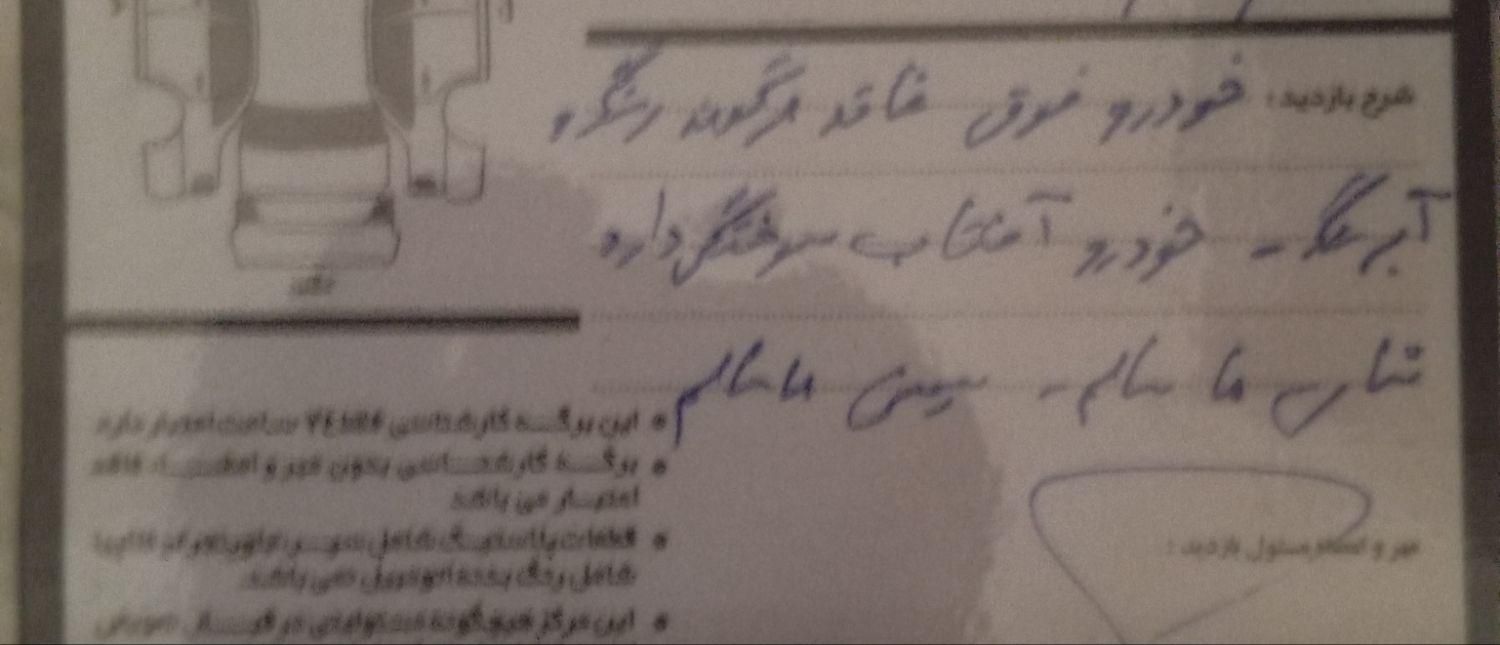 شرح بازدید: خودرو فوق فاقد هرگونه رنگ و
آبرنگ - خودرو آفتاب سوختگی دارد
شاسی ها سالم - سینی ها سالم
عقب
• این برگه کارشناسی ۲۴ ساعت اعتبار دارد
• برگه کارشناسی بدون مهر و امضاء فاقد
اعتبار می باشد
• قطعات پلاستیک شامل سپر
شامل رنگ بدنه اتومبیل نمی باشد
• این مرکز هیچگونه مسئولیتی در قبال
مهر و امضاء مسئول بازدید: